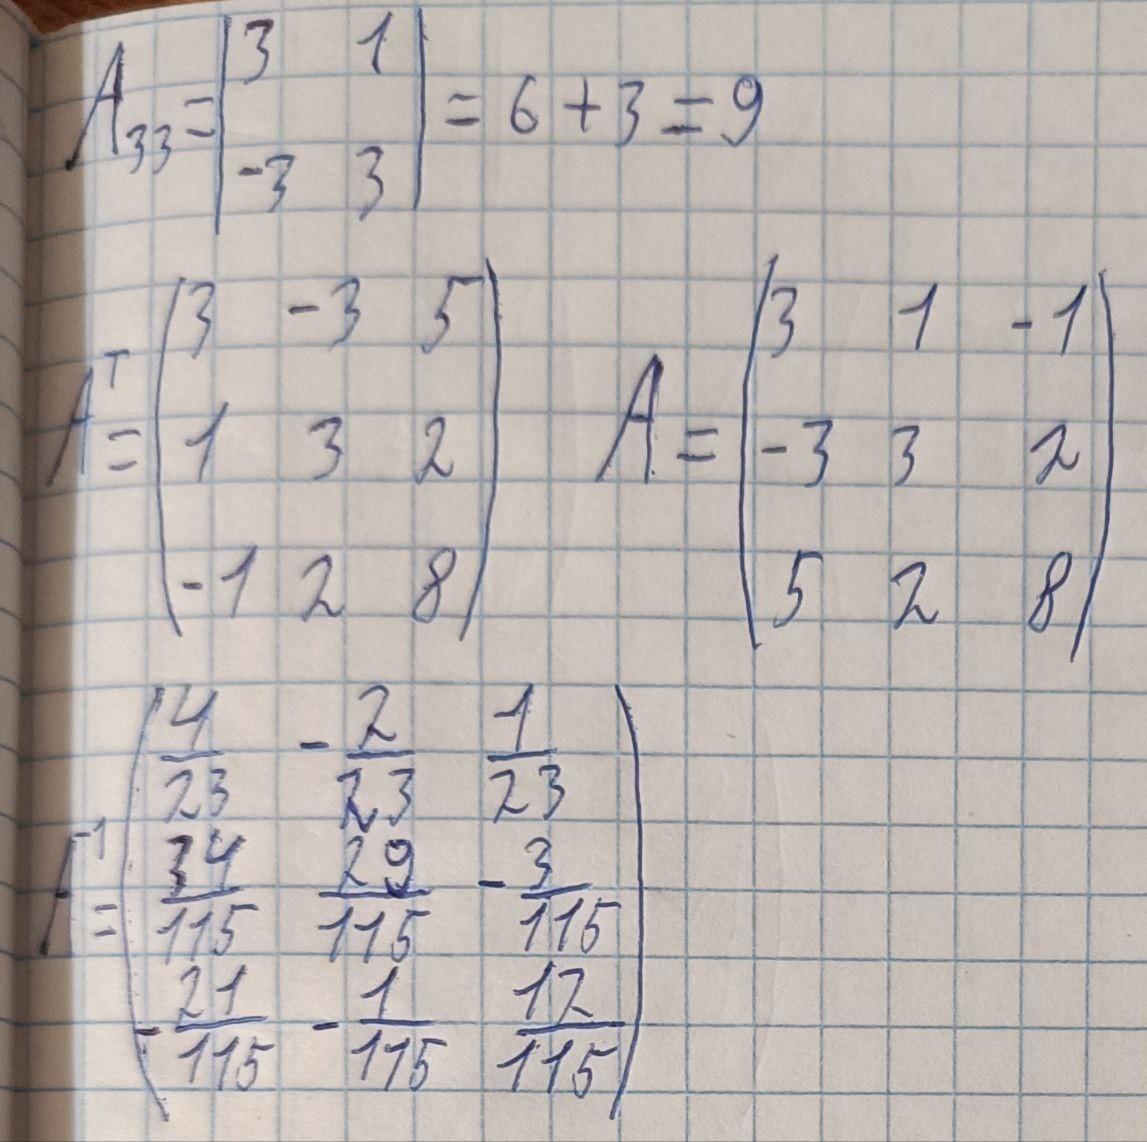 A₃₃ = | 3 1 | = 6 + 3 = 9
| -3 3 |
Aᵀ = ( 3 -3 5 ) A = ( 3 1 -1 )
( 1 3 2 ) ( -3 3 2 )
( -1 2 8 ) ( 5 2 8 )
A⁻¹ = ( 4/23 -2/23 1/23 )
( 34/115 29/115 -3/115 )
( -21/115 -1/115 12/115 )